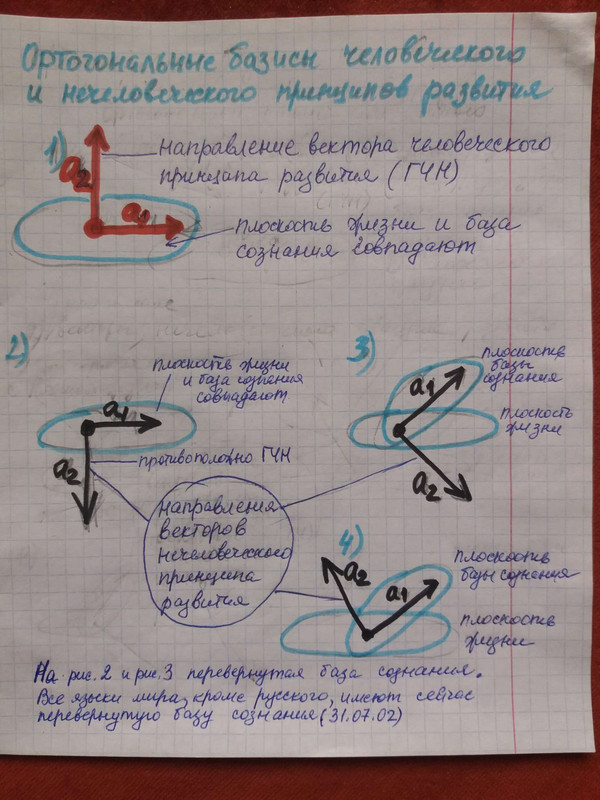 Ортогональные базисы человеческого
и нечеловеческого принципов развития
1)
a2
a1
направление вектора человеческого
принципа развития (ГЧН)
плоскость жизни и база
сознания совпадают
2)
плоскость жизни
и база сознания
совпадают
a1
a2
противоположно ГЧН
3)
плоскость
базы
сознания
a1
плоскость
жизни
a2
направления
векторов
нечеловеческого
принципа
развития
4)
a2
a1
плоскость
базы сознения
плоскость
жизни
На рис. 2 и рис. 3 перевернутая база сознания.
Все языки мира, кроме русского, имеют сейчас
перевернутую базу сознания (31.07.02)